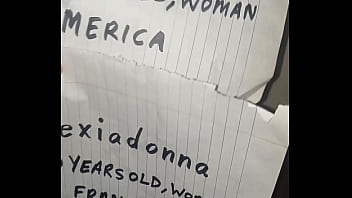 D, WOMAN
MERICA
exiadonna
YEARS OLD, WO
FRAN